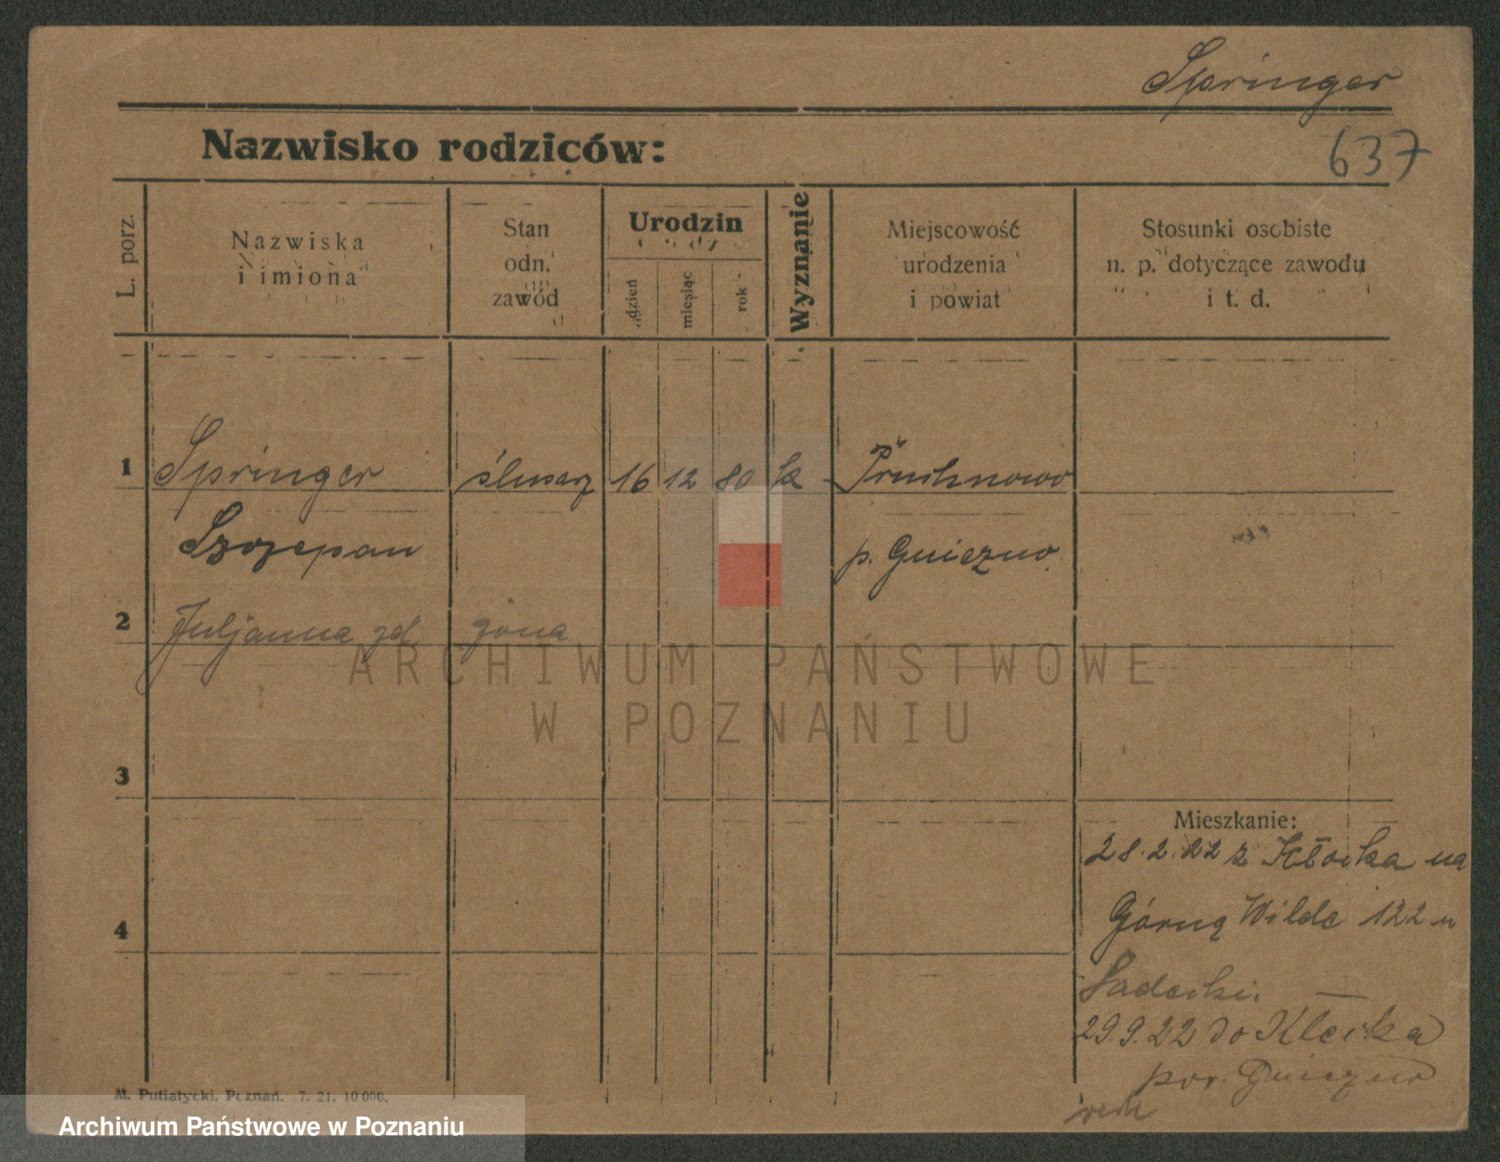 Springer
637
Nazwisko rodziców:
L. porz.
Nazwiska
i imiona
Stan
odn.
zawód
Urodzin
dzień
miesiąc
rok
Wyznanie
Miejscowość
urodzenia
i powiat
Stosunki osobiste
n. p. dotyczące zawodu
i t. d.
1 Springer ślusarz 16 12 80 k Pruchnowo
Szczepan p. Gniezno
2 Juljanna żona
3
4
Mieszkanie:
28.2.22 z Kłocka na
Górną Wildę 122 u
Sadecki.
29.9.22 do Klecka
pow. Gniezno
M. Putiatycki. Poznań. 7. 21. 10 000.
ARCHIWUM PAŃSTWOWE
W POZNANIU
Archiwum Państwowe w Poznaniu